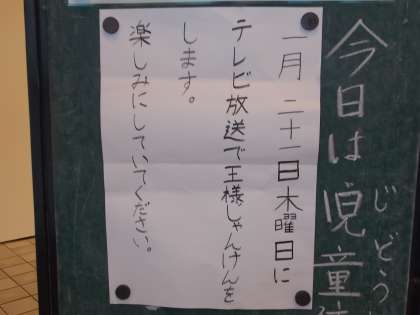 今日は児童
じどう
一月二十一日木曜日に
テレビ放送で王様じゃんけんを
します。
楽しみにしていてください。